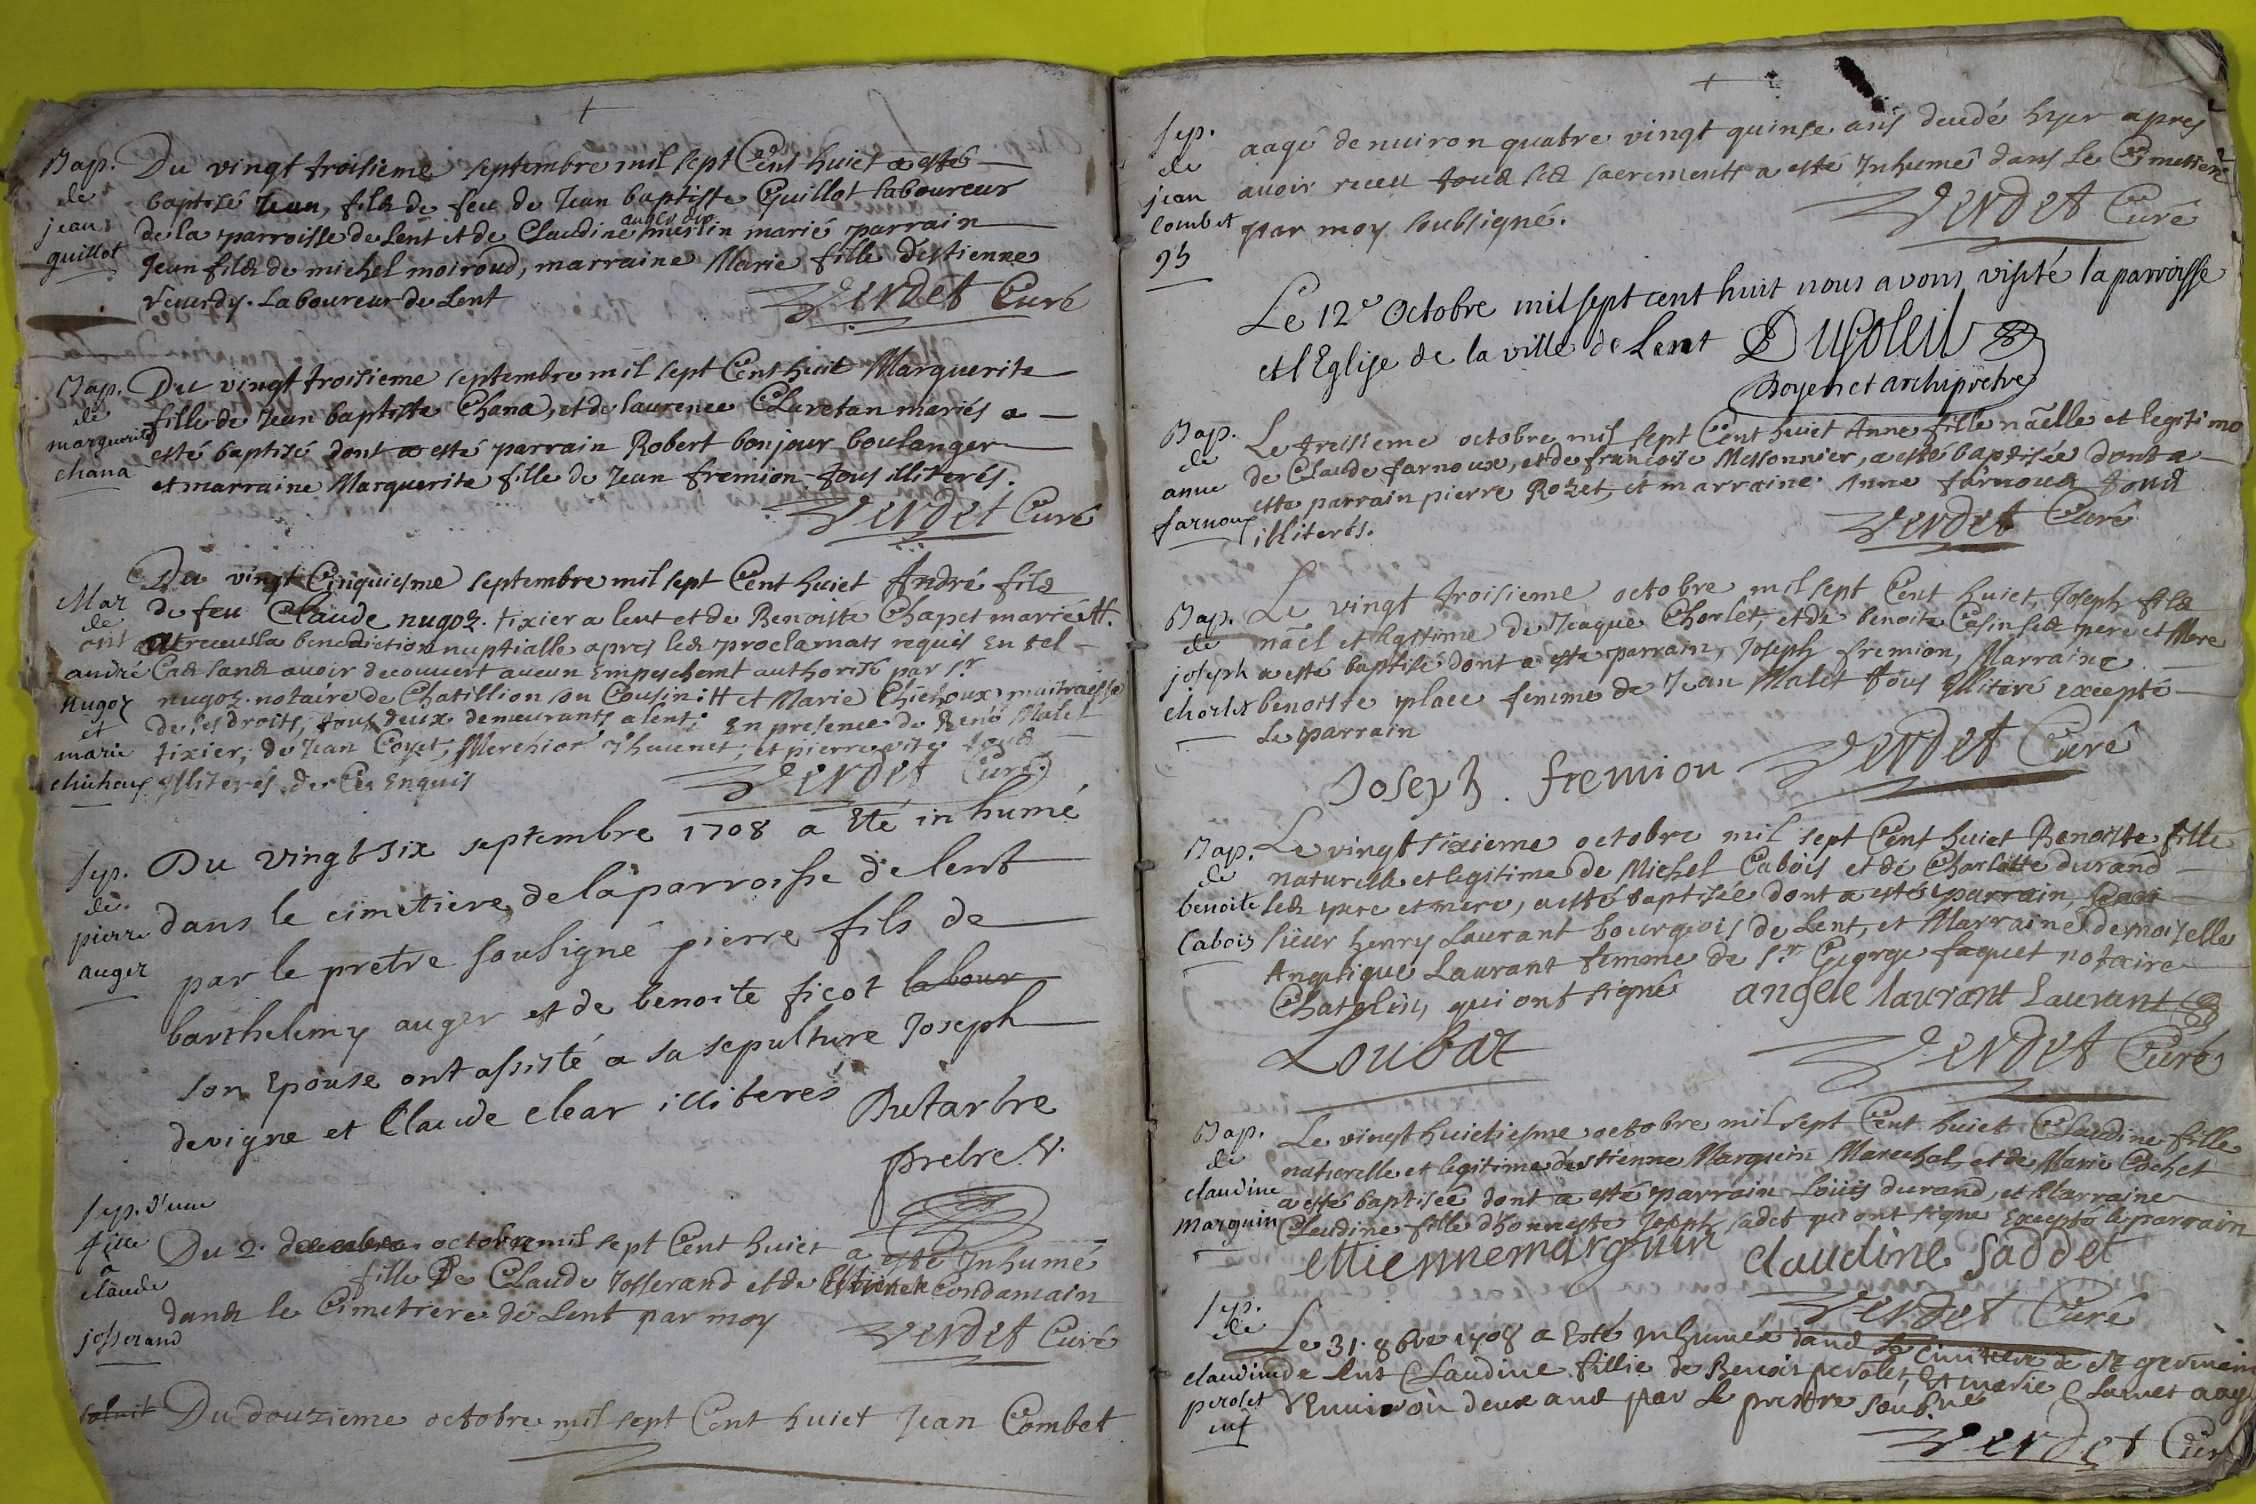 Bap.
de
jean
guillot
Du vingt troisieme septembre mil sept Cent huict a esté
baptisé Jean, fils de feu de Jean baptiste Guillot laboureur
de la parroisse de Lent et de Claudine mariè parrain
Jean fils de michel moiroud, marraine Marie fille d'estienne
Laboureur de Lent
Verdet Curé
Bap.
de
marguerite
chana
Du vingt troisieme septembre mil sept Cent huit Marguerite
fille de Jean baptiste Chana, et de laurence Claretan mariés a
esté baptisé dont a esté parrain Robert bonjour boulanger
et marraine Marguerite fille de Jean fremion tous illiterés.
Verdet Curé
Mar
de
andré
nugoz
et
marie
chicheux
Du vingt Cinquiesme septembre mil sept Cent huict André fils
de feu Claude nugoz tixier a lent et de Benoiste Chapet mariés
ont receu la benediction nuptialle apres les proclamats requis En tel
Cas sans avoir decouvert aucun Empeschemt authorisé par sr
nugoz notaire de Chatillion son Cousin et Marie Chicheux maitraisse
de ses droits, tous deux demeurants a lent; En presence de Malet
tixier, de Jean Coyet, et pierre tous
illiterés de Ce Enquis
Verdet Curé
sep.
de
pierre
auger
Du vingt six septembre 1708 a Eté inhumé
dans le cimetiere de la parroisse de lent
par le pretre sousigné pierre fils de
barthelemy auger et de benoite ficot labour
son Epouse ont assisté a sa sepulture Joseph
devigne et Claude clear illiterés
Dutartre
pretre V.
sep. d'une
fille
a
claude
josserand
Du 2. decembre octobre mil sept Cent huict a esté Inhumé
fille De Claude Josserand et de Estienete Condamain
dans le Cimetiere de Lent par moy
Verdet Curé
Du douzieme octobre mil sept Cent huict Jean Combet
sep.
de
jean
combet
95
aagé denuiron quatre vingt quinse ans decedé hyer apres
avoir receu tous les sacrements a esté Inhumé dans le Cimettiere
par moy soubsigné.
Verdet Curé
Le 12e Octobre mil sept cent huit nous avons visité la parroisse
et l'Eglise de la ville de Lent Dusoleil
Doyen et archiprêtre
Bap.
de
anne
farnoux
Le treisieme octobre mil sept Cent huict Anne fille naëlle et legitime
de Claude farnoux, et de francoise Messonnier, a esté baptisée dont a
esté parrain pierre Rozet, et marraine Anne farnoux tous
illiterés.
Verdet Curé
Bap.
de
joseph
chorlet
Le vingt troisieme octobre mil sept Cent huict, Joseph fils
nael et legitime de Jaque Chorlet, et de benoite Casin ses pere et Mere
a esté baptisé dont a esté parrain, Joseph fremion, Marraine
benoiste place femme de Jean Malet tous Illiteré excepté
le parrain
Joseph fremion
Verdet Curé
Bap.
de
benoite
Cabois
Le vingt sixieme octobre mil sept Cent huict Benoiste fille
naturelle et legitime de Michel Cabois et de Charlotte durand
ses pere et mere, a esté baptisée dont a esté parrain,
sieur henry Laurant bourgeois de Lent, et Marraine demoiselle
Angelique Laurant femme de sr George faquet notaire
Chatelin, qui ont signé angele laurant Laurant
Loubat
Verdet Curé
Bap.
de
claudine
marguin
Le vingt huictiesme octobre mil sept Cent huict Claudine fille
naturelle et legitime d'estienne Marguin Marechal et de Marie Cochet
a esté baptisée dont a esté parrain Loüis durand, et Marraine
Claudine fille d'honneste Joseph sadet qui ont signe Excepté le parrain
ettienne marguin claudine saddet
Verdet Curé
sep.
de
claudine
perolet
Le 31. 8bre 1708 a Esté inhumée dans le Cimitiere de st germain
de lent Claudine fillie de Benoit perolet, Et marie aag
d'Environ deux ans par le pretre soubné
Verdet Cur